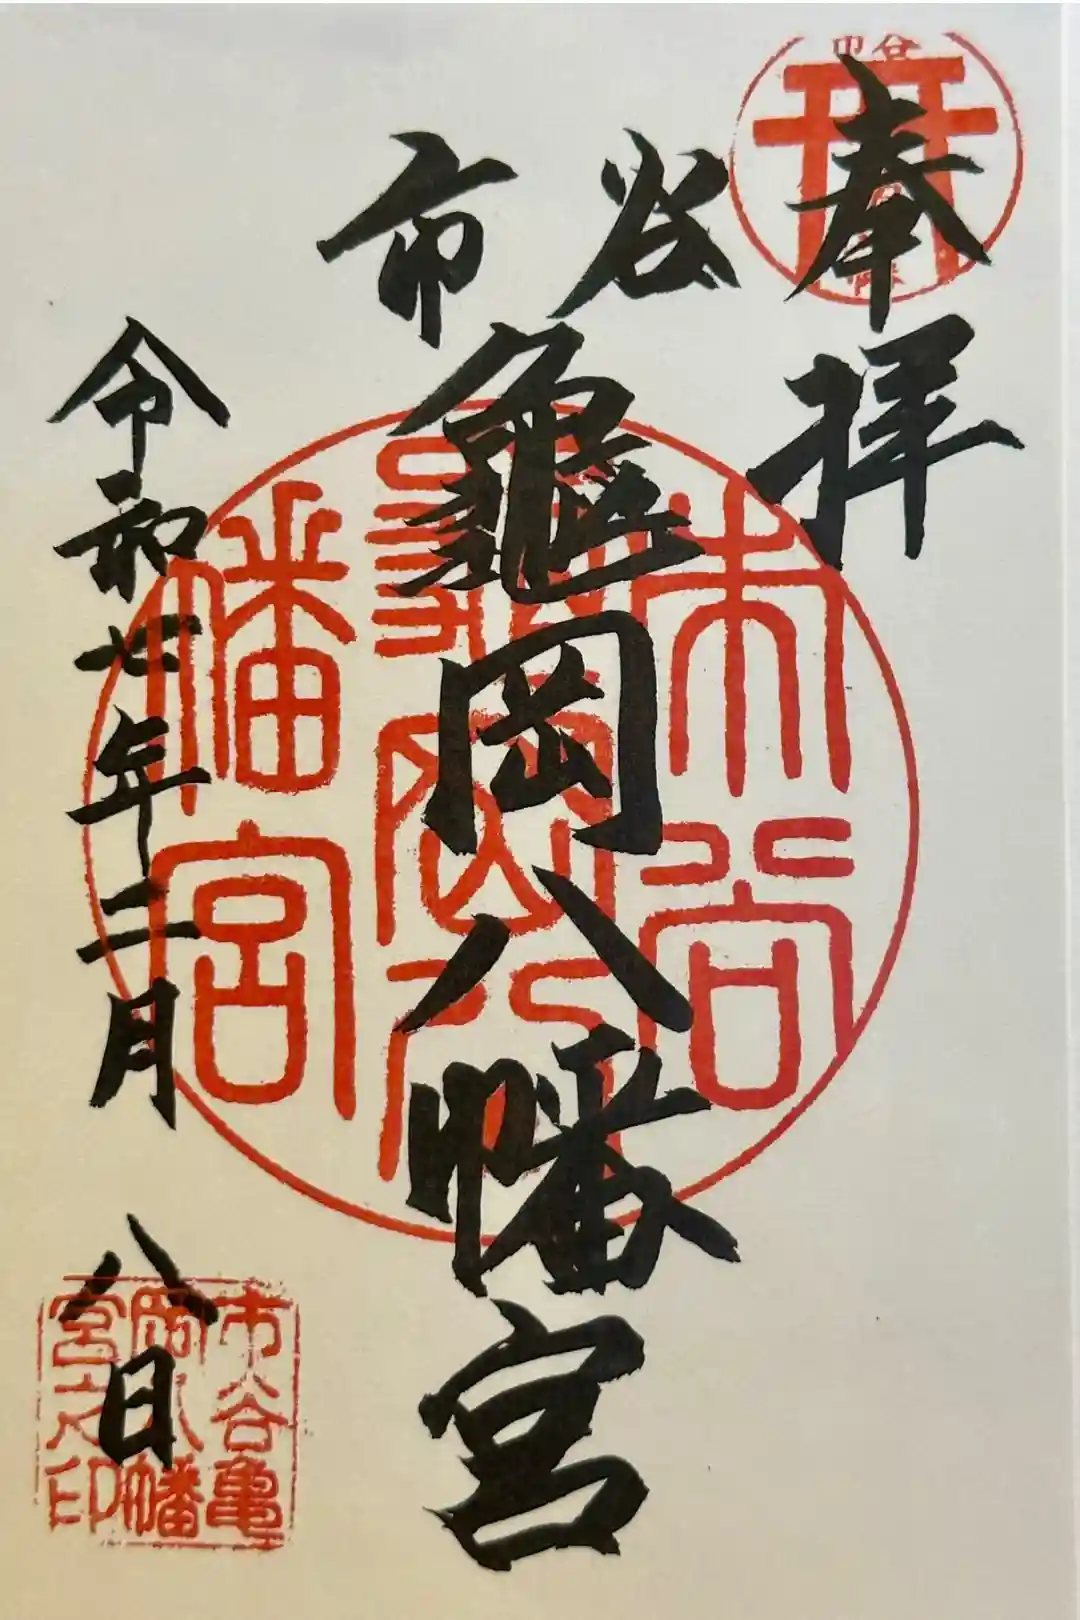 奉拝
市谷
亀岡八幡宮
令和七年二月八日
市谷
市谷
亀岡八
幡宮
市谷亀
岡八幡
宮之印